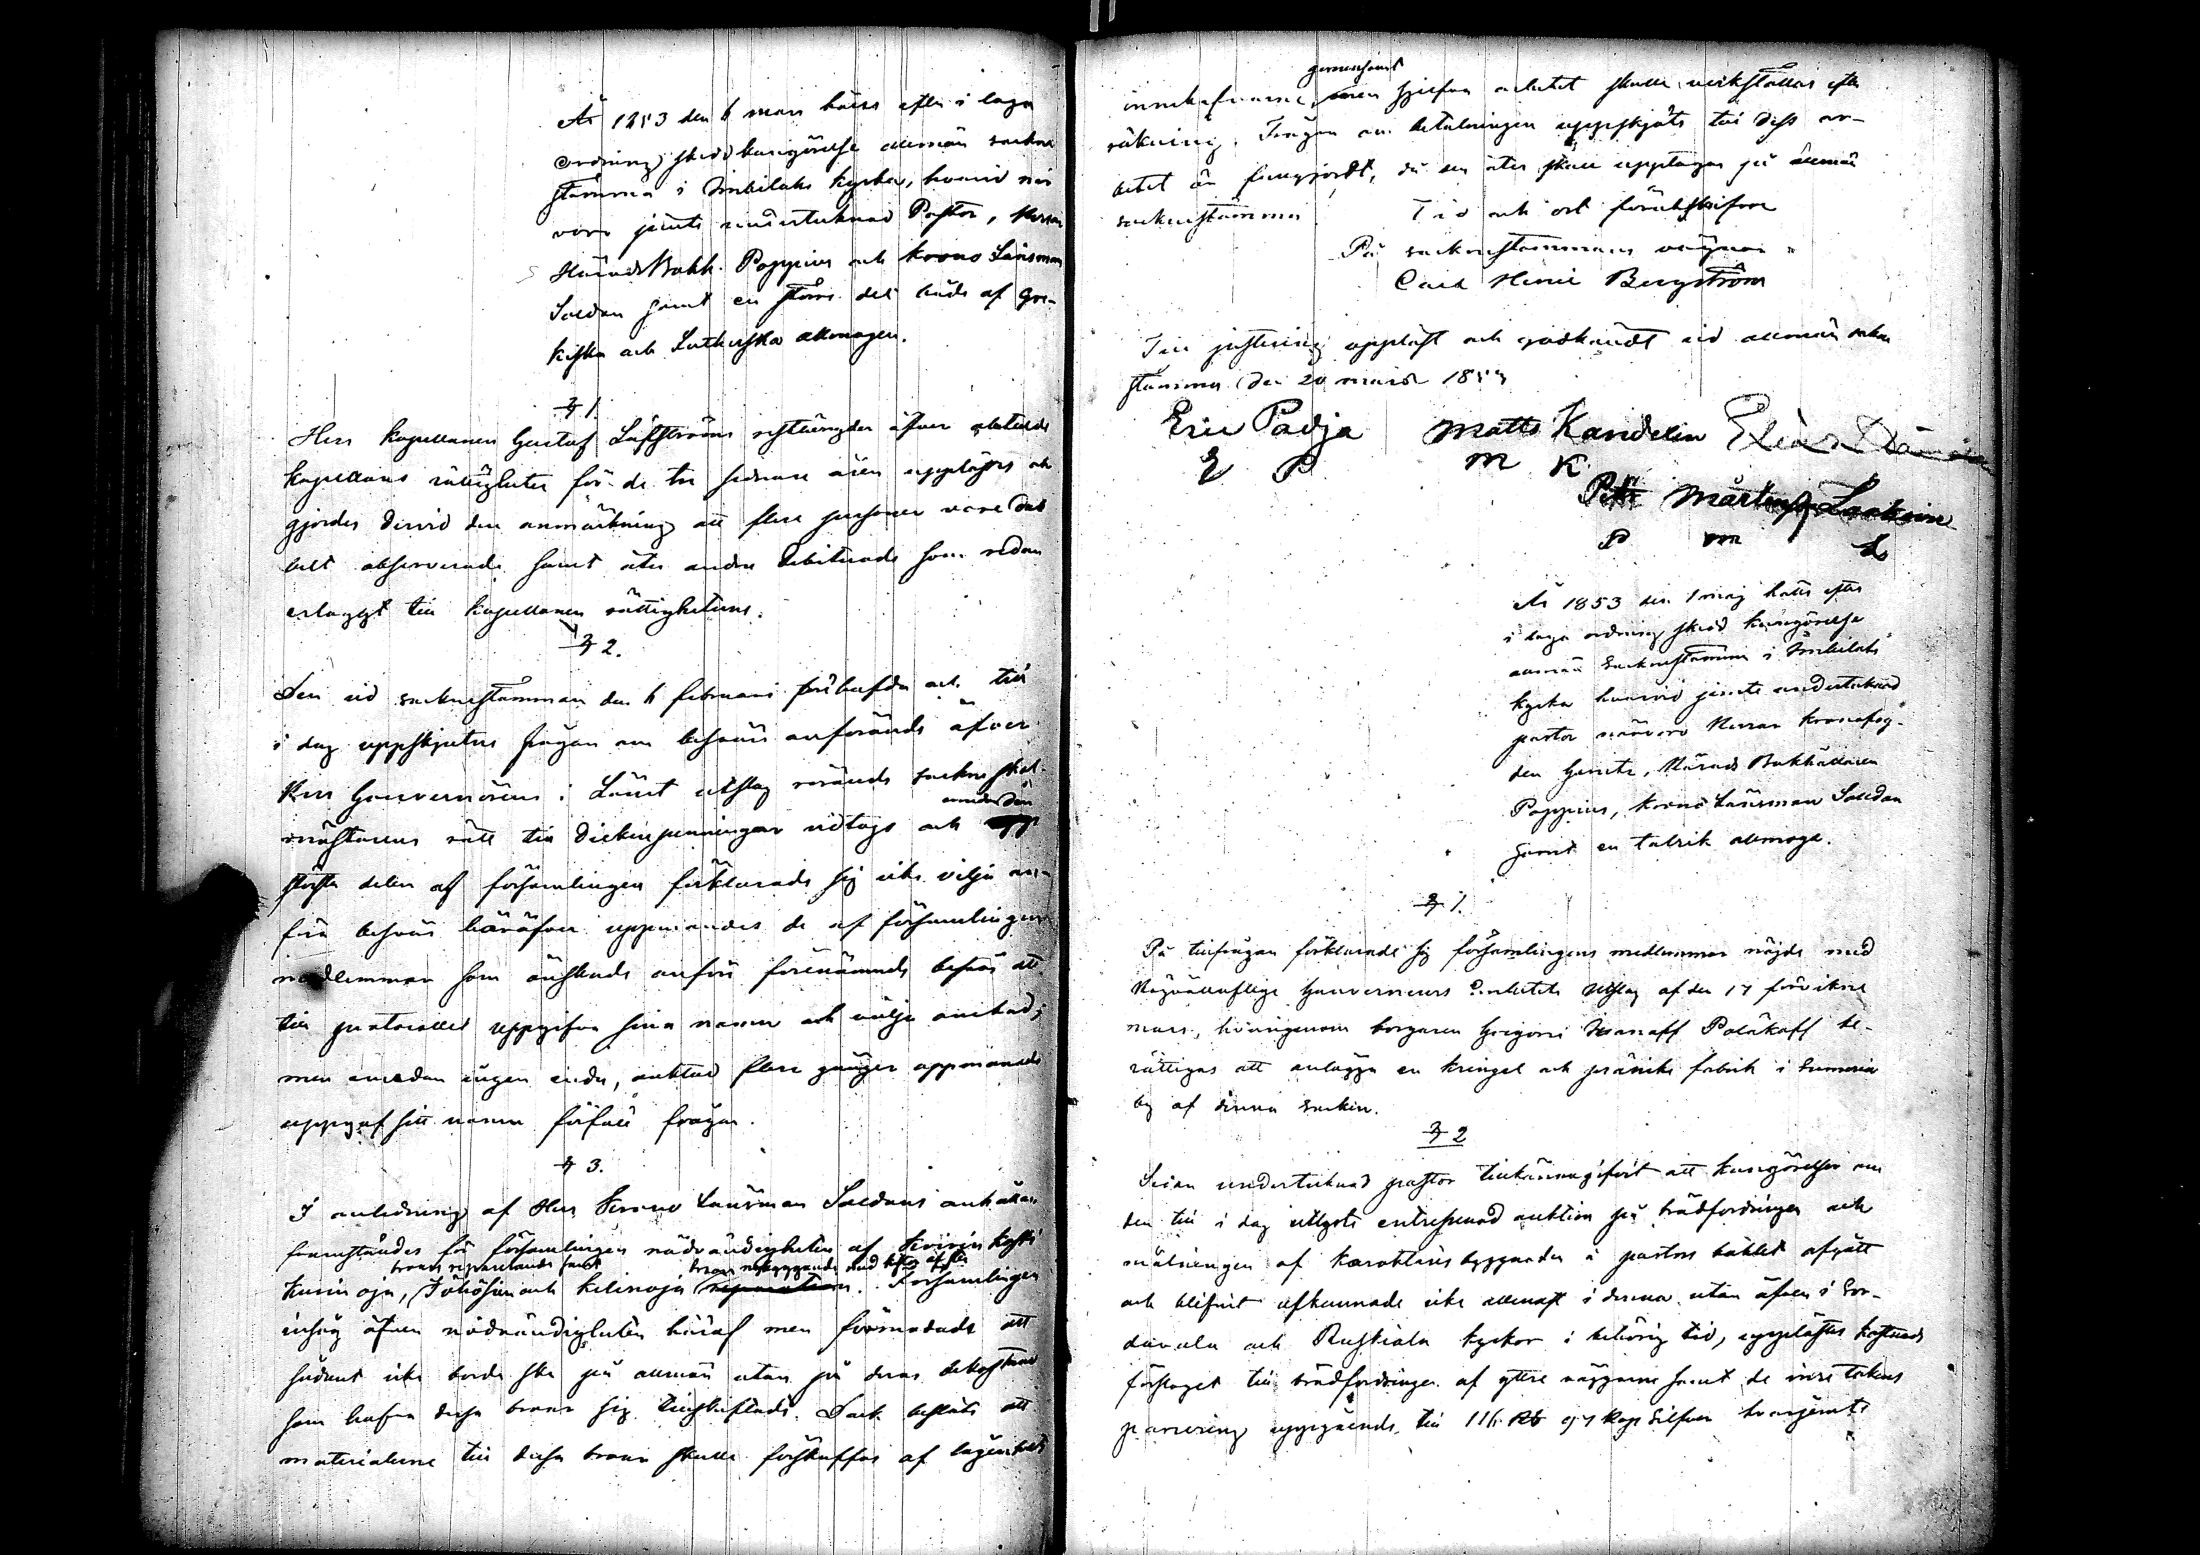 År 1853 den 6 mars hölls efter i laga
ordning skedd kungörelse allmän sockne
stämma i Imbilaks kyrka, hvarvid när
voro jemte undertecknad Pastor, Herrar
Härads Bokh. Poppius och krono Länsman
Soldan samt en större del både af Gre-
kiska och Lutherska allmogen.
§ 1.
Herr Kapellanen Gustaf Löfströms restlängder öfver obetalde
kapellans rättigheter för de tre sednare åren upplästes och
gjordes dervid den anmärkning att flere personer vore dub
belt observerade samt åter andra debiterade som redan
erlaggt till kapellanen rättigheterne.
§ 2.
Den vid sockenstämman den 6 februari förehafda och till
i dag uppskjutna frågan om besvärs anförande öfver
Herr Gouvernörens i Länet utslag rörande sockne skol-
mästarens rätt till Dickerpenningar vidtogs och emedan
största delen af församlingen förklarade sig icke vilja an-
föra besvär häröfver uppmanades de af församlingens
medlemmar som önskade anföra förenämnde besvär att
till protocollet uppgifva sina namn och välja ombud;
men emedan ingen enda, oaktad flere gånger uppmanade
uppgaf sitt namn förföll frågan.
§ 3.
I anledning af Herr Krono Länsman Soldans anhållan
framställdes för församlingen nödvändigheten af Kivisin koski
broars reparerande samt broars nybyggande
Kuninoja, Jökösen och Kelinoja reparation. Församlingen
insåg äfven nödvändigheten häraf men förmodade att
sådant icke borde ske på allmän utan på deras bekostnad
som hafva dessa broar sig tillskiftade. Dock beslöts att
materialerne till dessa broar skulle förskaffas af lägenhets
gemensamt
innehafvarne, men sjelfva arbetet skulle verkställas efter
räkning. Frågan om betalningen uppskjöts till dess ar-
betet är färdiggjordt, då den åter skall upptagas på allmän
sockenstämma Tid och ort förutskrifven
På sockenstämmans vägnar
Carl Henric Bergström
Till justering uppläst och godkändt vid allmän sockne
stämma den 20 mars 1853
Eric Padja Matts Kandelin
E P M K
Petter Mårtensson Laakkoin
P M L
År 1853 den 1 maj hölls efter
i laga ordning skedd kungörelse
allmän Sockenstämma i Imbilaks
kyrka hvarvid jemte undertecknad
pastor närvoro Herrar kronofog-
den Gerits, Härads Bokhållaren
Poppius, krono Länsman Soldan
samt en talrik allmoge.
§ 1.
På tillfrågan förklarade sig församlingens medlemmar nöjde med
Högvällofliga Gouverneurs Embetets Utslag af den 17 förvikne
mars, hvarigenom borgaren Grigori Ivanoff Poläkoff be-
rättigas att anlägga en kringel och pränike fabrik i Sumeria
by af denna socken.
§ 2
Sedan undertecknad pastor tillkännagifvit att kungörelser om
den till i dag utlyste entreprenad auktion på brädfordringen och
målningen af karaktärs byggnaden å pastors bohlet afgått
och blifvit afkunnade icke allenast i denna utan äfven i Sor-
davala och Ruskiala kyrkor i behörig tid, upplästes kostnads
förslaget till brädfordringen af yttre väggarne samt de inre takens
panering uppgående till 116 Rb 97 kop Silfver hvarjemte